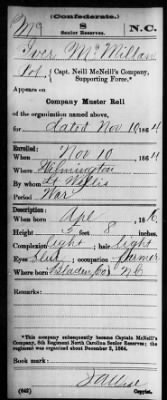 (Confederate.)
Mc 8 N.C.
Senior Reserves.
Iver McMillan
Pvt, Capt. Neill McNeill's Company,
Supporting Force.*
Appears on
Company Muster Roll
of the organization named above,
for dated Nov 10, 1864
Enrolled:
When Nov 10, 1864
Where Wilmington
By whom Lt
Period War
Description:
When born Apl
Height 5 feet 8 inches.
Complexion light; hair light
Eyes Blue; occupation Farmer
Where born Bladen Co NC
Remarks:
*This company subsequently became Captain McNeill's
Company, 8th Regiment North Carolina Senior Reserves; the
regiment was organized about December 2, 1864.
Book mark:
(642)
Copyist.